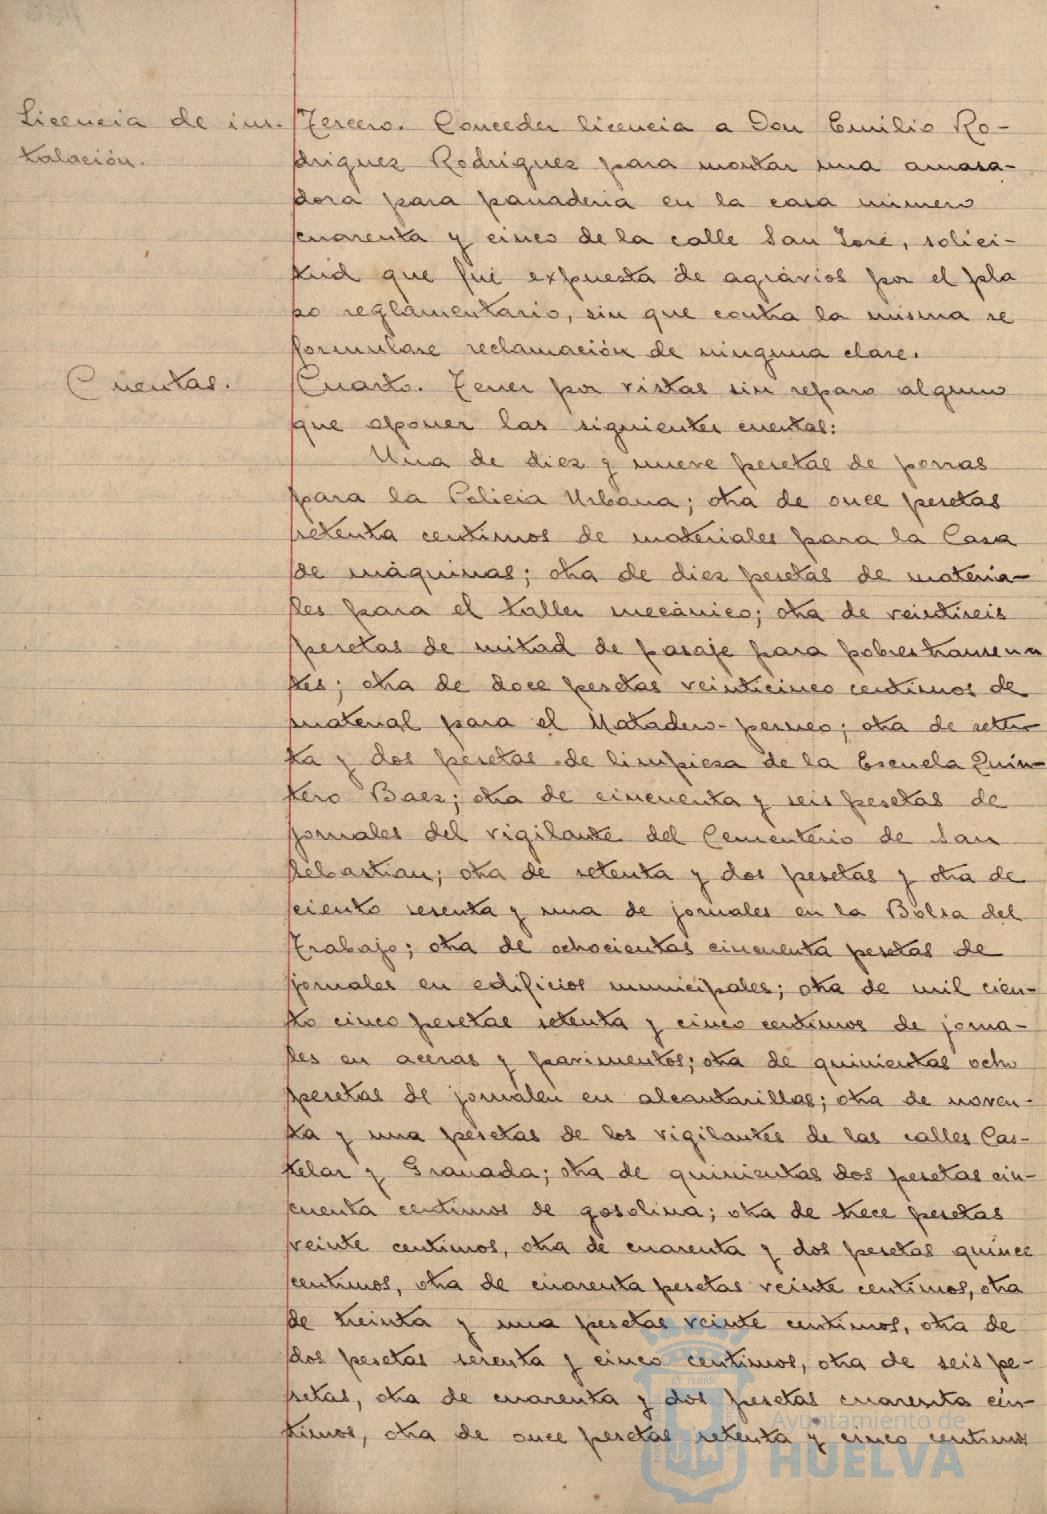 Licencia de ins-
talación.
Tercero. Conceder licencia a Don Emilio Ro-
driguez Rodriguez para montar una amasa-
dora para panaderia en la casa número
cuarenta y cinco de la calle San José, solici-
tud que fué expuesta de agravios por el pla
zo reglamentario, sin que contra la misma se
formulase reclamación de ninguna clase.
Cuentas.
Cuarto. Tener por vistas sin reparo alguno
que oponer las siguientes cuentas:
Una de diez y nueve pesetas de porras
para la Policia Urbana; otra de once pesetas
setenta centimos de materiales para la Casa
de máquinas; otra de diez pesetas de materia-
les para el taller mecánico; otra de veintiseis
pesetas de mitad de pasaje para pobres transeun
tes; otra de doce pesetas veinticinco centimos de
material para el Matadero-perneo; otra de seten-
ta y dos pesetas de limpieza de la Escuela Quin-
tero Baez; otra de cincuenta y seis pesetas de
jornales del vigilante del Cementerio de San
Sebastian; otra de setenta y dos pesetas y otra de
ciento sesenta y una de jornales en la Bolsa del
Trabajo; otra de ochocientas cincuenta pesetas de
jornales en edificios municipales; otra de mil cien-
to cinco pesetas setenta y cinco centimos de jorna-
les en aceras y pavimentos; otra de quinientas ocho
pesetas de jornales en alcantarillas; otra de noven-
ta y una pesetas de los vigilantes de las calles Cas-
telar y Granada; otra de quinientas dos pesetas cin-
cuenta centimos de gasolina; otra de trece pesetas
veinte centimos, otra de cuarenta y dos pesetas quince
centimos, otra de cuarenta pesetas veinte centimos, otra
de treinta y una pesetas veinte centimos, otra de
dos pesetas sesenta y cinco centimos, otra de seis pe-
setas, otra de cuarenta y dos pesetas cuarenta cén-
timos, otra de once pesetas setenta y cinco centimos
ET TERRÆ
Ayuntamiento de
HUELVA